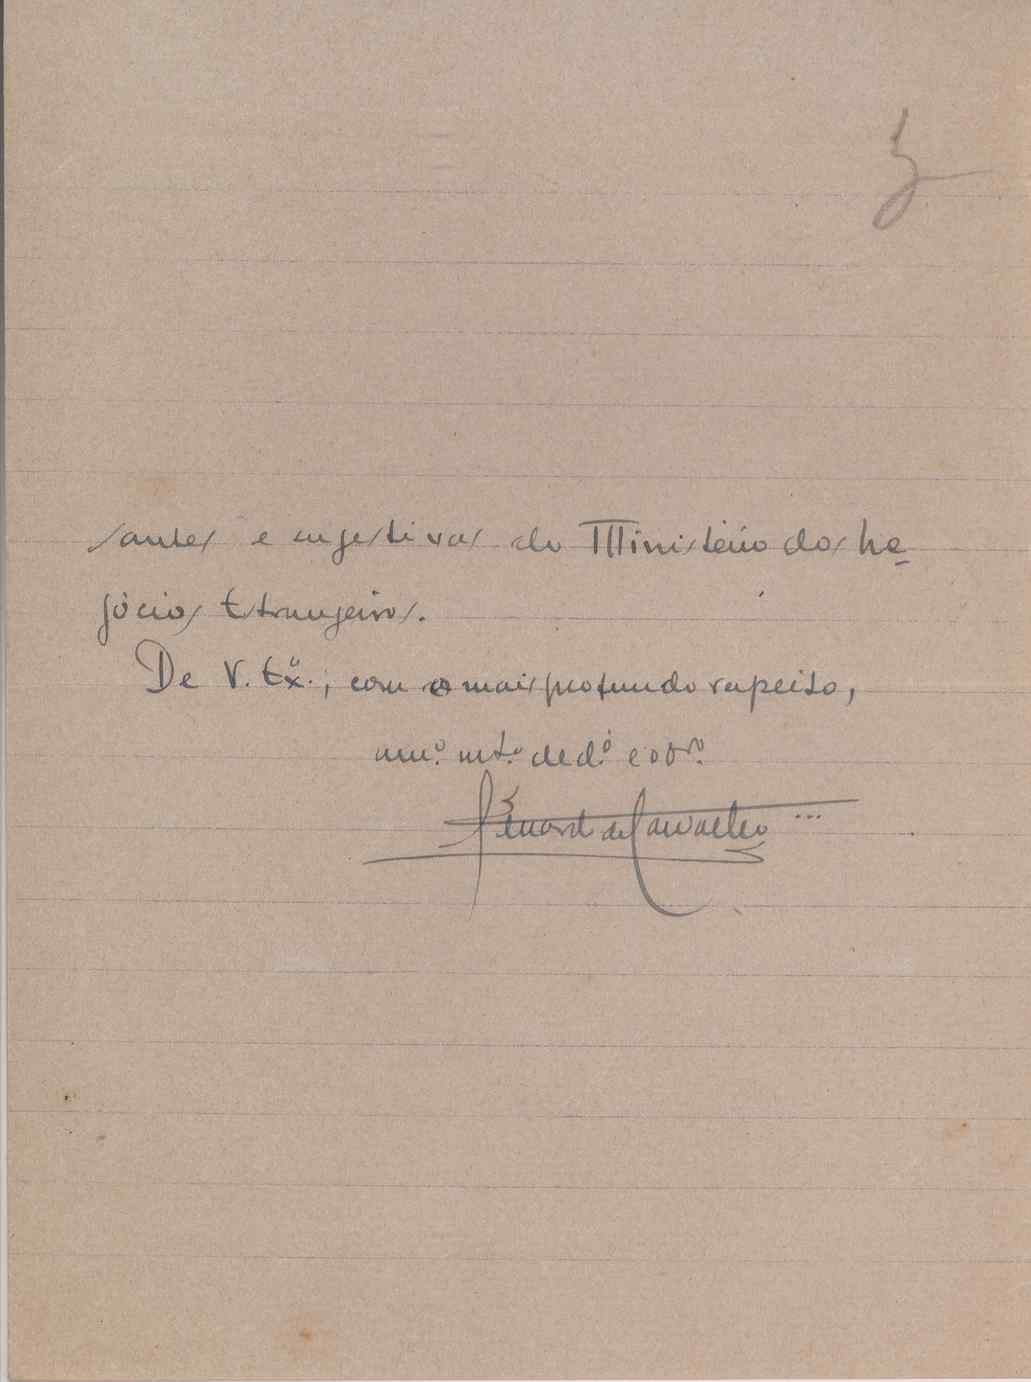 santes e sugestivas do Ministério dos Ne-
gócios Estrangeiros.
De V. Exª., com o mais profundo respeito,
mtº. dedº. e obrº.
de Carvalho ...